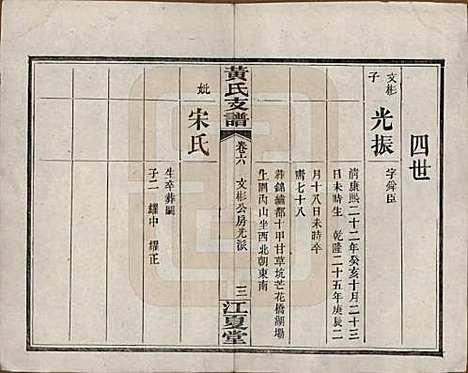 四世
文彬子
光振
字舜臣
清康熙二十二年癸亥十月二十三
日未時生 乾隆二十五年庚辰二
月十八日未時卒
壽七十八
葬錦繡都十甲甘草坑芒花橋湖塲
生圓丙山坐西北朝東南
黃氏支譜
卷六
文彬公房光派
三
江夏堂
妣
宋氏
生卒葬闕
子二 耀中 耀正